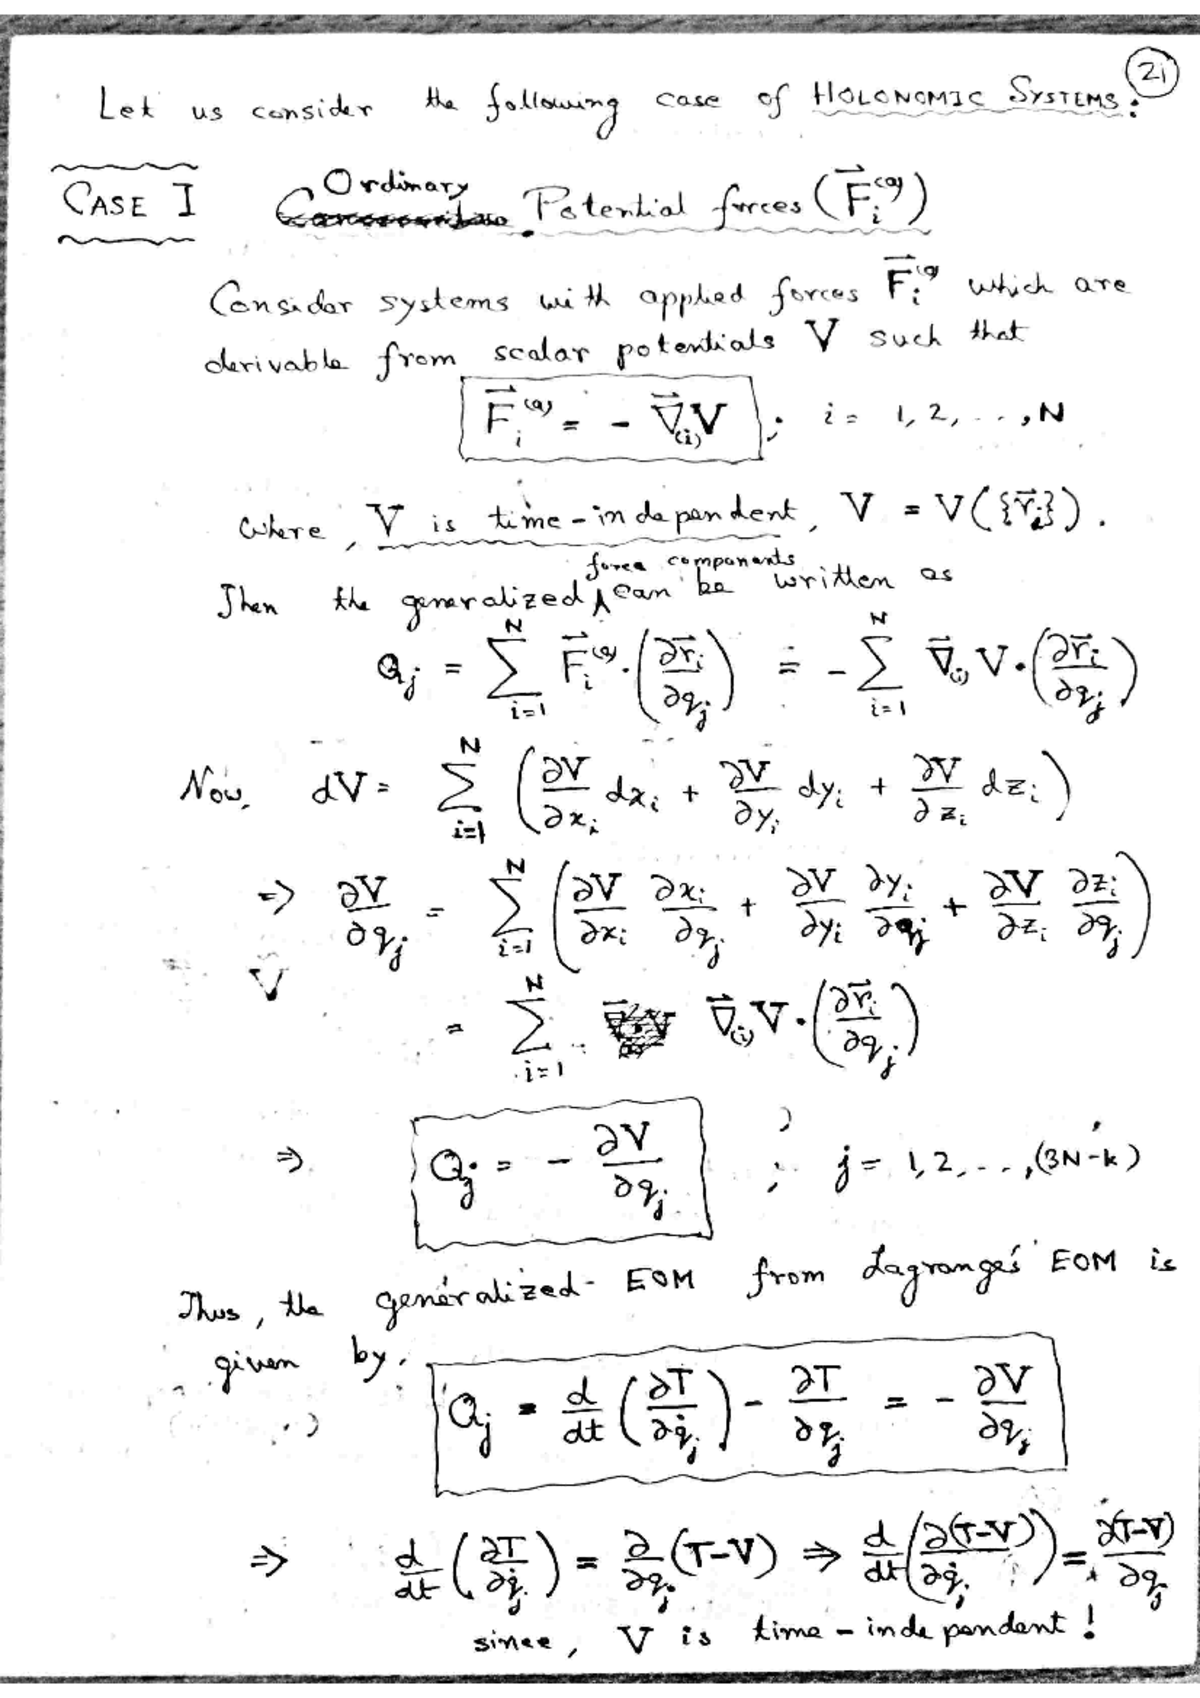 21
Let us consider the following case of HOLONOMIC SYSTEMS:
CASE I Ordinary Potential forces (F⃗ᵢ⁽ᵃ⁾)
Consider systems with applied forces F⃗ᵢ⁽ᵃ⁾ which are
derivable from scalar potentials V such that
F⃗ᵢ⁽ᵃ⁾ = - ∇⃗₍ᵢ₎V ; i = 1, 2, . . , N
where, V is time-independent, V = V({r⃗ᵢ}).
Then the generalized force components can be written as
Qⱼ = Σᵢ₌₁ᴺ F⃗ᵢ⁽ᵃ⁾ · (∂r⃗ᵢ/∂qⱼ) = - Σᵢ₌₁ᴺ ∇⃗₍ᵢ₎V · (∂r⃗ᵢ/∂qⱼ)
Now, dV = Σᵢ₌₁ᴺ (∂V/∂xᵢ dxᵢ + ∂V/∂yᵢ dyᵢ + ∂V/∂zᵢ dzᵢ)
⇒ ∂V/∂qⱼ = Σᵢ₌₁ᴺ (∂V/∂xᵢ ∂xᵢ/∂qⱼ + ∂V/∂yᵢ ∂yᵢ/∂qⱼ + ∂V/∂zᵢ ∂zᵢ/∂qⱼ)
V
= Σᵢ₌₁ᴺ ∇⃗₍ᵢ₎V · (∂r⃗ᵢ/∂qⱼ)
⇒ Qⱼ = - ∂V/∂qⱼ ; j = 1, 2, . . , (3N-k)
Thus, the generalized- EOM from Lagrange's EOM is
given by.
Qⱼ = d/dt (∂T/∂q̇ⱼ) - ∂T/∂qⱼ = - ∂V/∂qⱼ
⇒ d/dt (∂T/∂q̇ⱼ) = ∂/∂qⱼ (T-V) ⇒ d/dt (∂(T-V)/∂q̇ⱼ) = ∂(T-V)/∂qⱼ
since, V is time-independent!